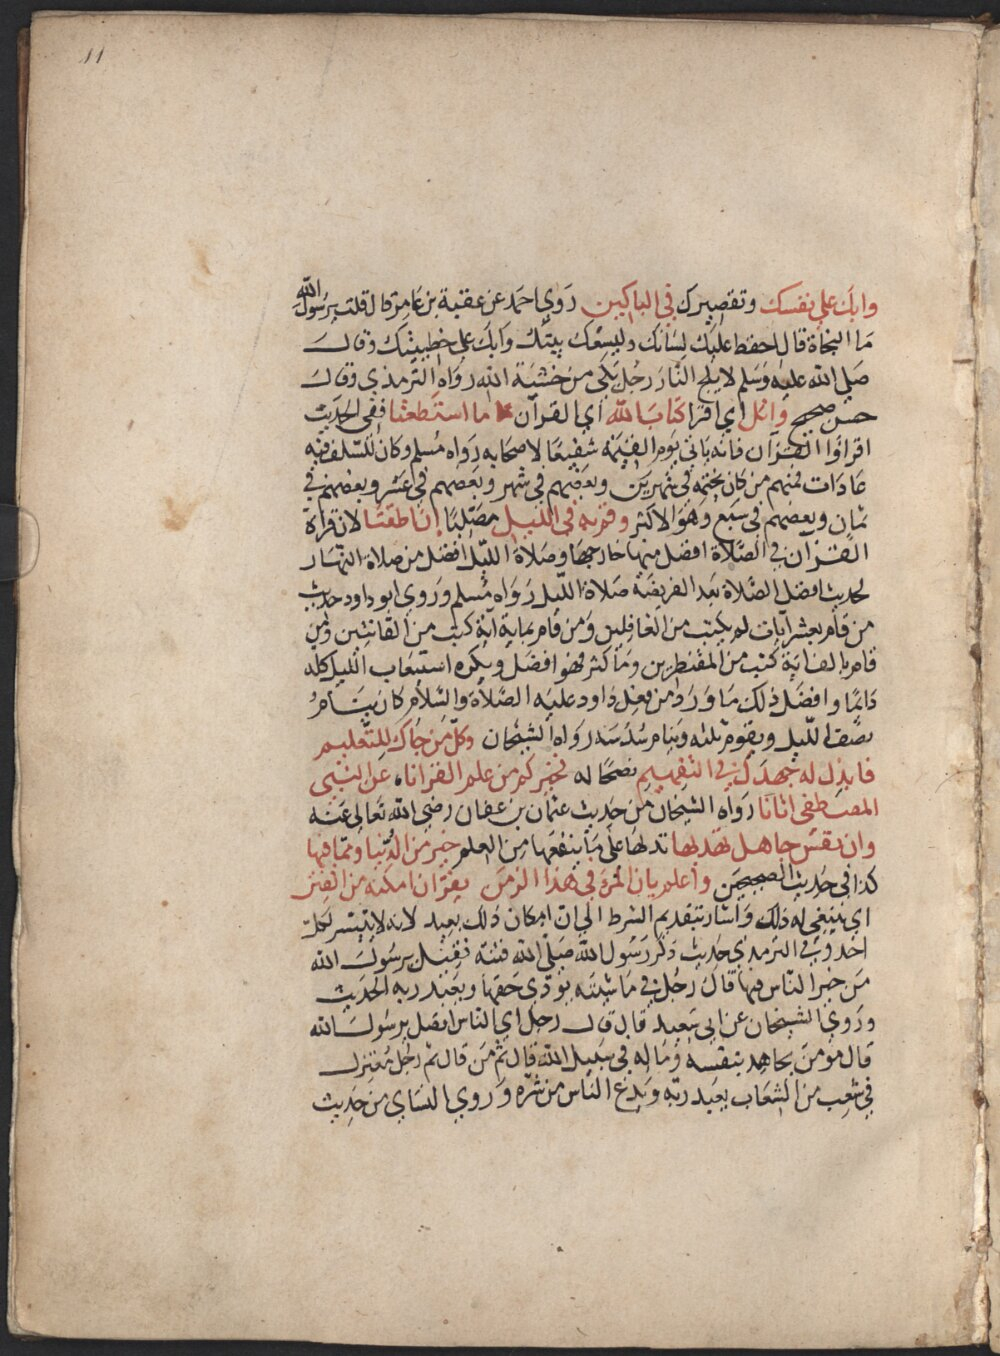 11
وابك علي نفسك وتقصيرك في الباكين روي احمد عن عقبة بن عامر قال قلت يرسول الله
ما النجاة قال احفظ عليك لسانك وليسعك بيتك وابك على خطيئتك وقال
صلى الله عليه وسلم لا يلج النار رجل بكى من خشية الله رواه الترمذي وقال
حسن صحيح واتل اي اقرا كتاب الله اي القرآن ما استطعتا ففي الحديث
اقراوا القرآن فانه ياتى يوم القيمة شفيعا لاصحابه رواه مسلم وكان للسلف فيه
عادات فمنهم من كان يختمه في شهرين وبعضهم في شهر وبعضهم في عشر وبعضهم في
ثمان وبعضهم في سبع وهو الاكثر وقم به في الليل مصليا ان اطقتا لان قراة
القرآن في الصلاة افضل منها خارجها وصلاة الليل افضل من صلاة النهار
لحديث افضل الصلاة بعد الفريضة صلاة الليل رواه مسلم وروى ابو داود حديث
من قام بعشر آيات لم يكتب من الغافلين ومن قام بماية آية كتب من القانتين ومن
قام بالف اية كتب من المقنطرين وما كثر فهو افضل ويكره استيعاب الليل كله
دايما وافضل ذلك ما ورد من فعل داود عليه الصلاة والسلام كان ينام
نصف الليل ويقوم ثلثه وينام سدسه رواه الشيخان وكل من جاك للتعليم
فابذل له جهدك في التفهيم نصحا له فخيركم من علم القرانا عن النبي
المصطفى اتانا رواه الشيخان من حديث عثمان بن عفان رضي الله تعالى عنه
وان نفس جاهل تهد لها تدلها على ما ينفعها من العلم خير من الدنيا وما فيها
كذا في حديث الصحيحين واعلم بان المرء في هذا الزمن يفر ان امكنه من الفتن
اي ينبغي له ذلك واشار بتقديم الشرط الي ان امكان ذلك بعيد لانه لا يتيسر لكل
احد وفي الترمذي حديث ذكر رسول الله صلى الله فتنه فقيل يرسول الله
من خير الناس فيها قال رجل في ماشيته يودي حقها ويعبد ربه الحديث
وروي الشيخان عن ابى سعيد قال قال رجل اي الناس افضل يرسول الله
قال مومن يجاهد بنفسه وماله في سبيل الله قال ثم من قال ثم رجل معتزل
في شعب من الشعاب يعبد ربه ويدع الناس من شره وروي النساي من حديث